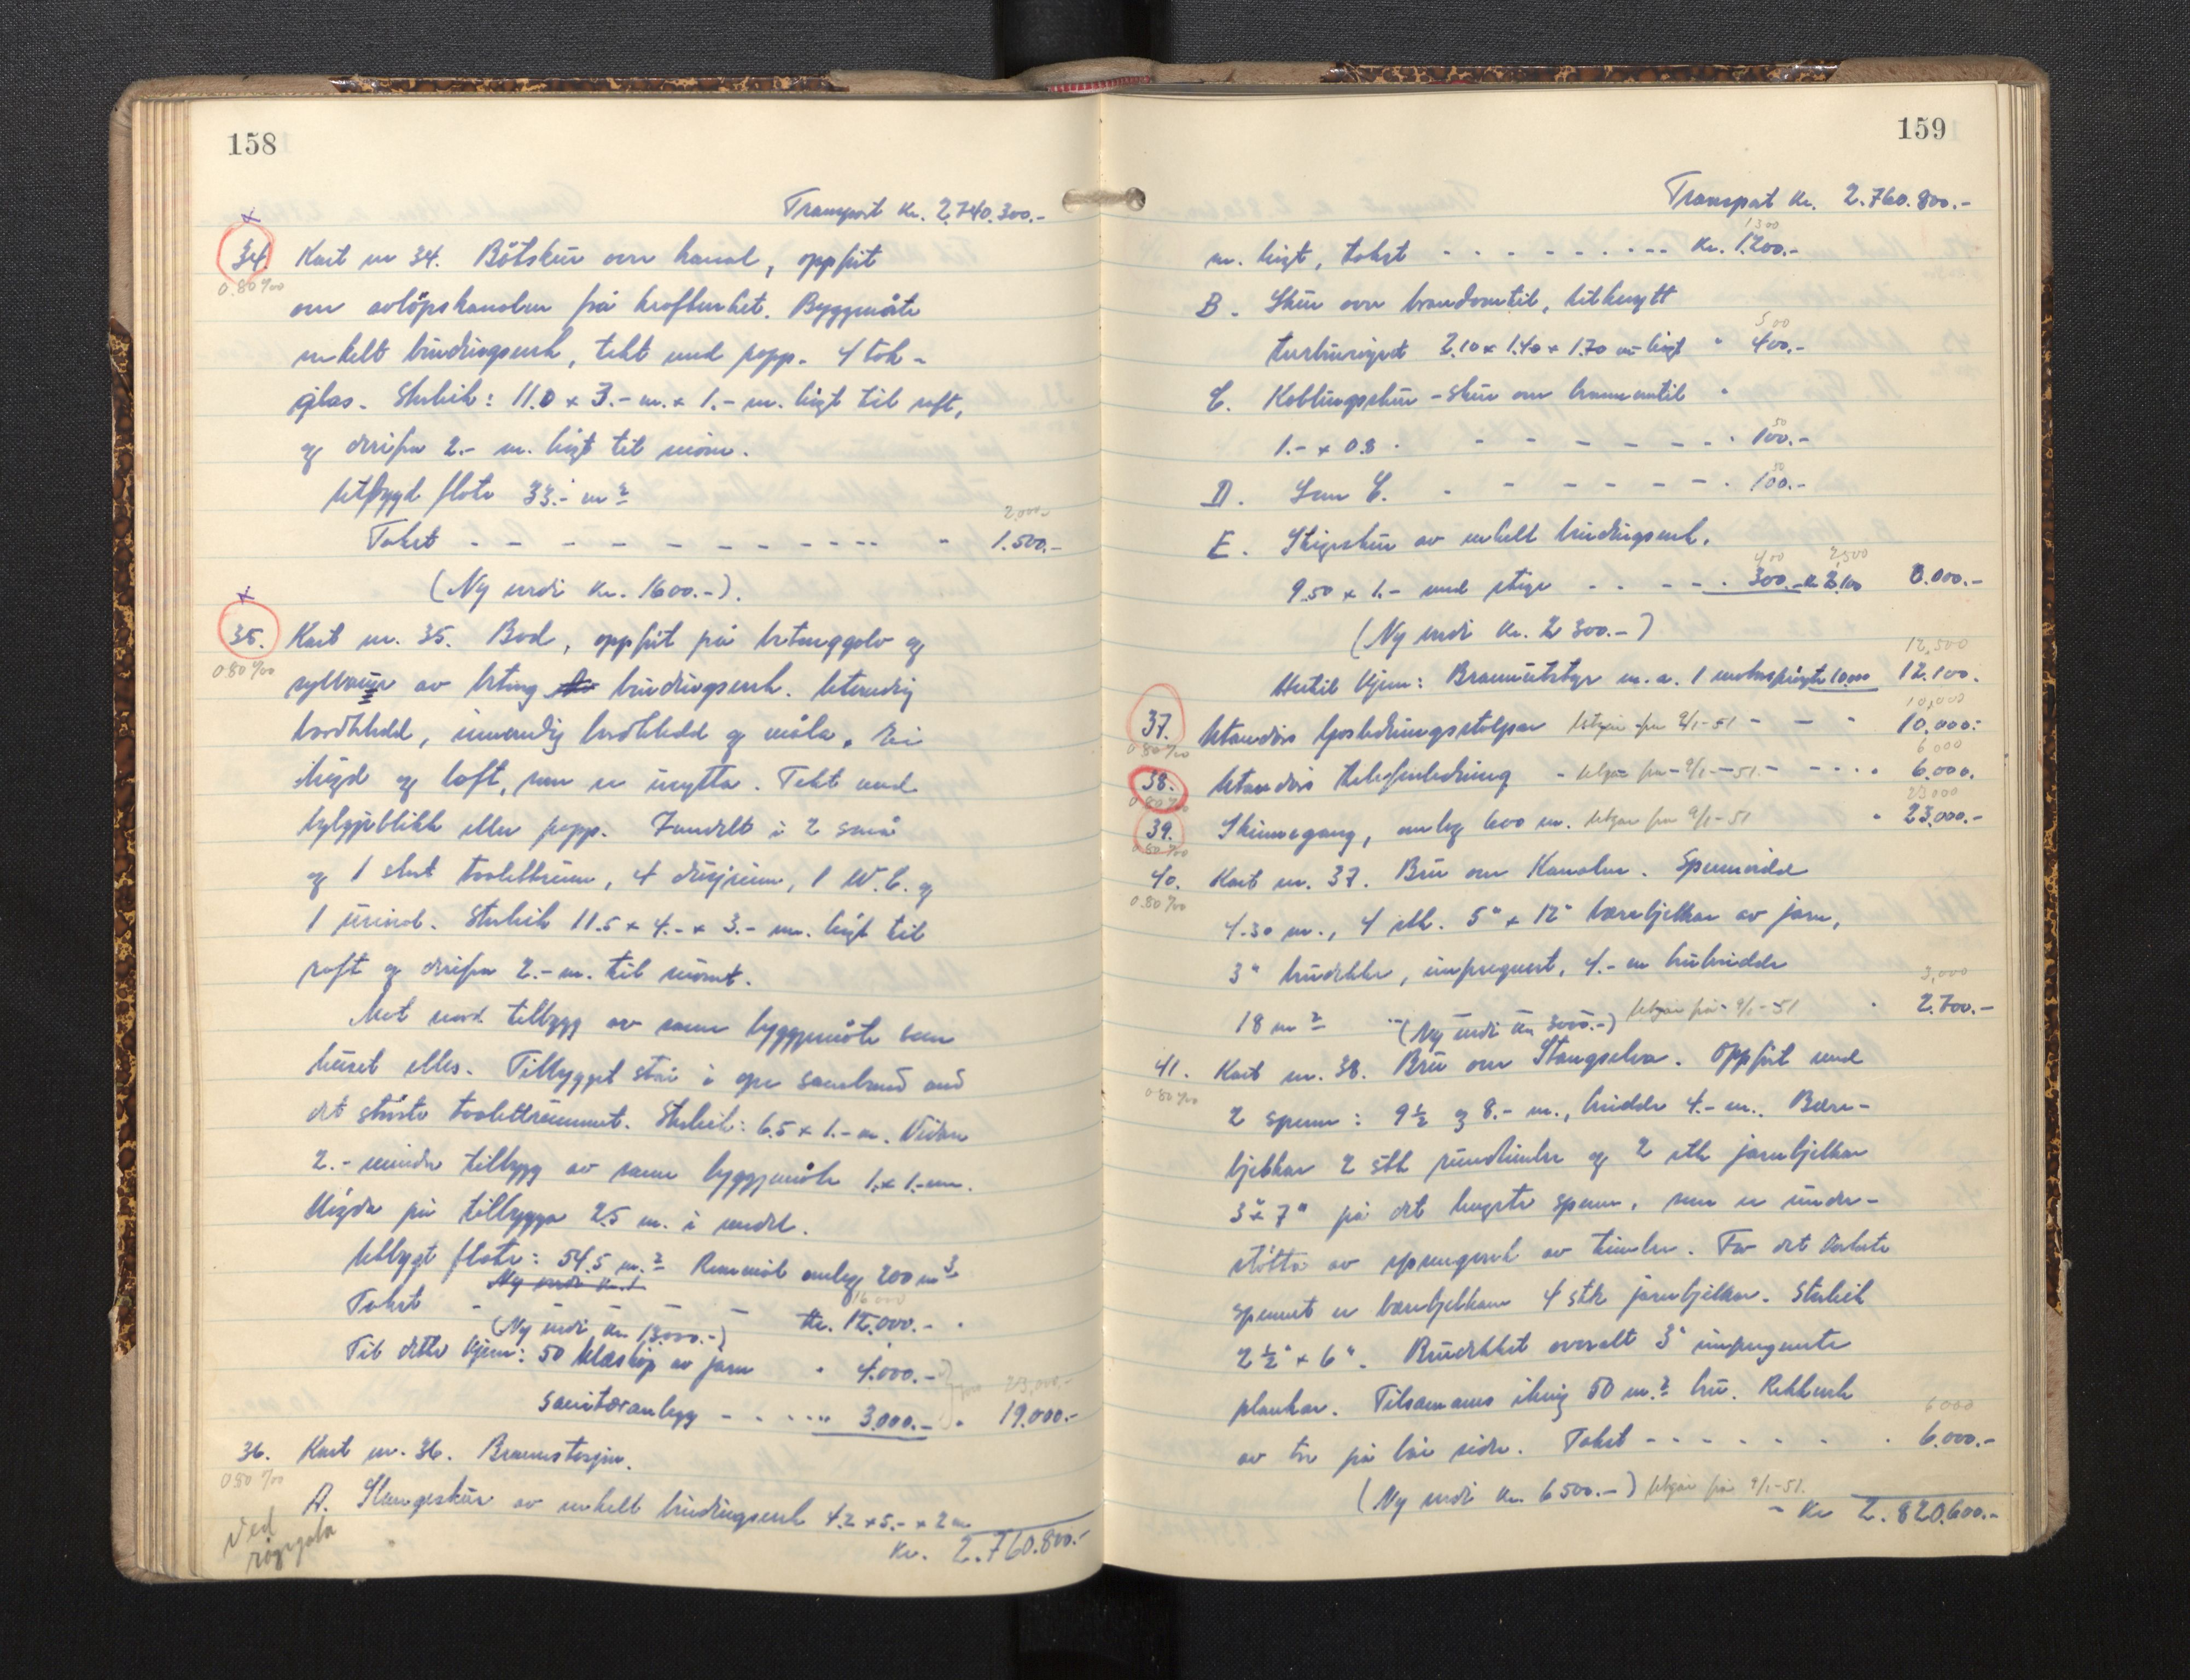 158
Transport kr. 2.740.300.-
34. Kart nr 34. Båtskur over kanal, oppført
0.80 ‰
over avløpskanalen frå kraftverket. Byggemåte
enkelt bindingsverk, tekt med papp. 4 tak-
glas. Storleik: 11.0 x 3.- m. x 1.- m. høgt til raft,
og derifrå 2.- m. høgt til møne.
Utbygd flate 33.- m²
2.000.-
Takst - - - - - - - - " 1.500.-
(Ny verdi kr. 1600.-).
35. Kart nr. 35. Bad, oppført på betonggolv og
0.80 ‰
av betong bindingsverk. Utvendig
bordkledd, innvendig bordkledd og måla. Ei
høgd og loft, som er unytta. Tekt med
bylgjeblikk eller papp. Inndelt i 2 små
og 1 stort toalettrum, 4 dusjrum, 1 W.C. og
1 urinal. Storleik 11.5 x 4.- x 3.- m. høgt til
raft og derifrå 2.- m. til mønet.
Mot nord tilbygg av same byggjemåte som
huset elles. Tilbygget står i ope samband med
det største toalettrummet. Storleik: 6.5 x 1.- m. Vidare
2.- mindre tilbygg av same byggjemåte 1.x 1.- m.
Høgda på tilbygga 2.5 m. i medel.
Utbygt flate: 54.5 m.² Rommål omlag 200 m³
Ny verdi kr.
16000
Takst - - - - kr. 12.000.-
(Ny verdi kr. 13.000.-)
Til dette kjem: 50 klæskåp av jarn " 4.000.-
23,000.-
Sanitæranlegg - - - " 3.000.- " 19.000.-
36. Kart nr. 36. Brannstasjon.
0.80 ‰
A. Slangeskur av enkelt bindingsverk 4.2 x 5.- x 2 m
Ved
kr. 2.760.800.-
159
Transport kr. 2.760.800.-
1300
m. høgt, takst - - - - - - - - kr. 1.200.-
B. Skur over brandventil, tilknytt
500
2.10 x 1.40 x 1.70 m høgt " 400.-
C. Koblingsskur - skur over brannventil "
50
1.- x 0.8 - - - - - - 100.-
50
D. Som C. - - - - - - - 100.-
E. Stigeskur av enkelt bindingsverk.
400 2,500
9.50 x 1.- med stige - - - - 300.- kr 2.100
(Ny verdi kr. 2300.-)
12,500
Hertil kjem: Brannutstyr m.a. 1 motorsprøyte 10.000 12.100.
10,000
37. Utandørs ljosledningsstolpar Utgår frå 9/1-51 - - " 10.000.-
0.80 ‰
6.000
38. Utandørs telefonledning - utgår frå 9/1-51 - - - " 6.000.
0.80 ‰
23000
39. Skinnegang, omlag 600 m. utgår frå 9/1-51 " 23.000.-
0.80 ‰
40. Kart nr. 37. Bru over Kanalen. Spennvidde
0.80 ‰
4.30 m., 4 stk. 5" x 12" berebjelkar av jarn,
3" brudekke, impregnert, 4.- m brubreidde
3,000
18 m² (Ny verdi kr 3000.-) utgår frå 9/1-51 " 2.700.-
41. Kart nr. 38. Bru over Stangselva. Oppført med
0.80 ‰
2 spenn: 9½ og 8.- m., breidde 4.- m. Bære-
bjelkar 2 stk rundtimber og 2 stk jarnbjelkar
3" x 7" på det lengste spenn, som er under-
støtta av sprengverk av timber. For det korteste
spennet er bærebjelkane 4 stk jarnbjelkar. Storleik
2½" x 6". Brudekket overalt 3" impregnerte
plankar. Tilsammans ikring 50 m.² bru. Rekkverk
6000
av tre på båe sider. Takst - - - - - - " 6.000.-
(Ny verdi kr. 6500.-) utgår frå 9/1-51.
- kr 2.820.600.-